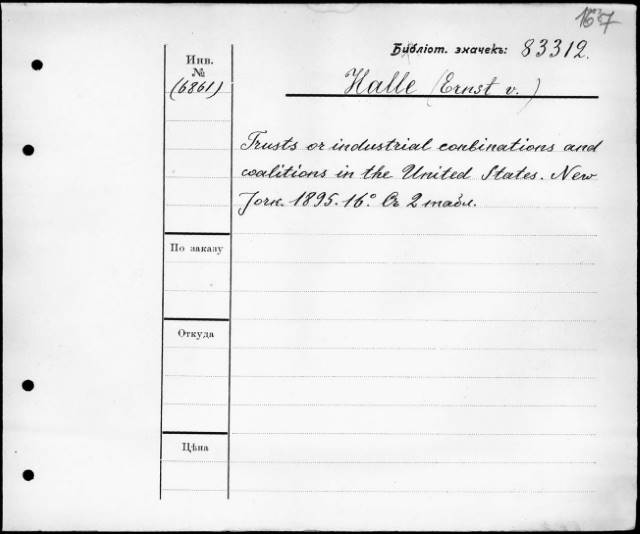 167
Библіот. значекъ: 83312.
Инв.
№
(6861)
Halle (Ernst v.)
Trusts or industrial conbinations and
coalitions in the United States. New
Jork. 1895. 16° Съ 2 табл.
По заказу
Откуда
Цѣна